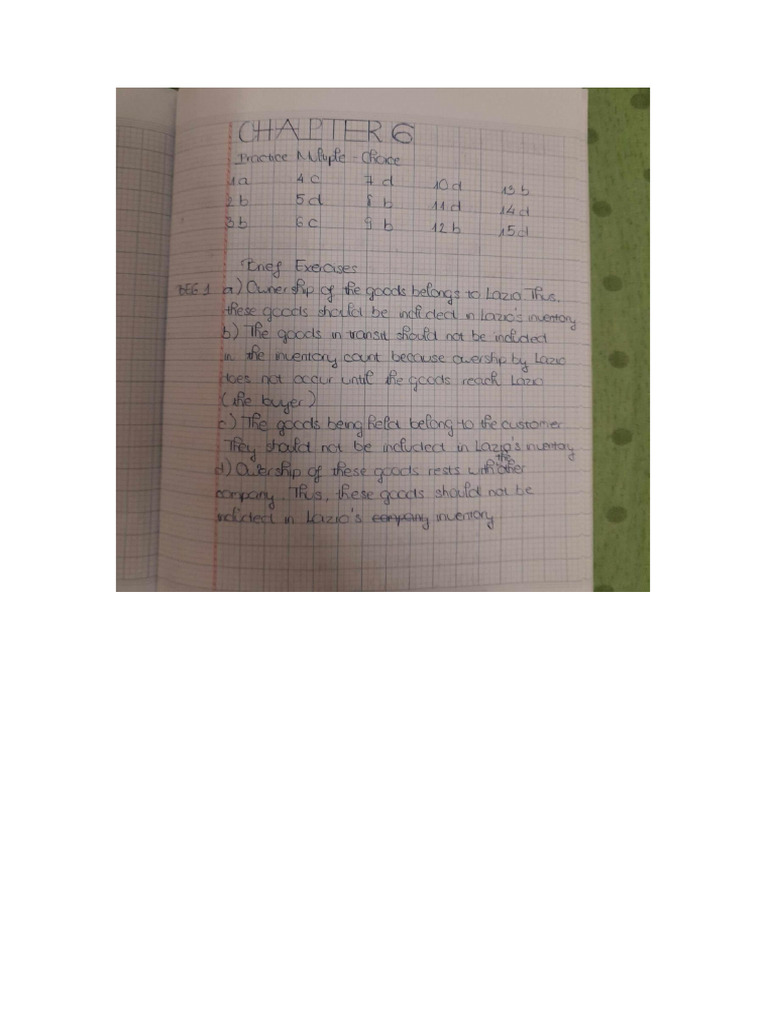 CHAPTER 6
Practice Multiple - Choice
1a 4c 7d 10d 13b
2b 5d 8b 11d 14d
3b 6c 9b 12b 15d
Brief Exercises
BE6 1 a) Ownership of the goods belongs to Lazio. Thus,
these goods should be included in Lazio's inventory
b) The goods in transit should not be included
in the inventory count because owership by Lazio
does not occur until the goods reach Lazio
(the buyer)
c) The goods being held belong to the customer
They should not be included in Lazio's inventory
d) Owership of these goods rests with the other
company. Thus, these goods should not be
included in Lazio's company inventory